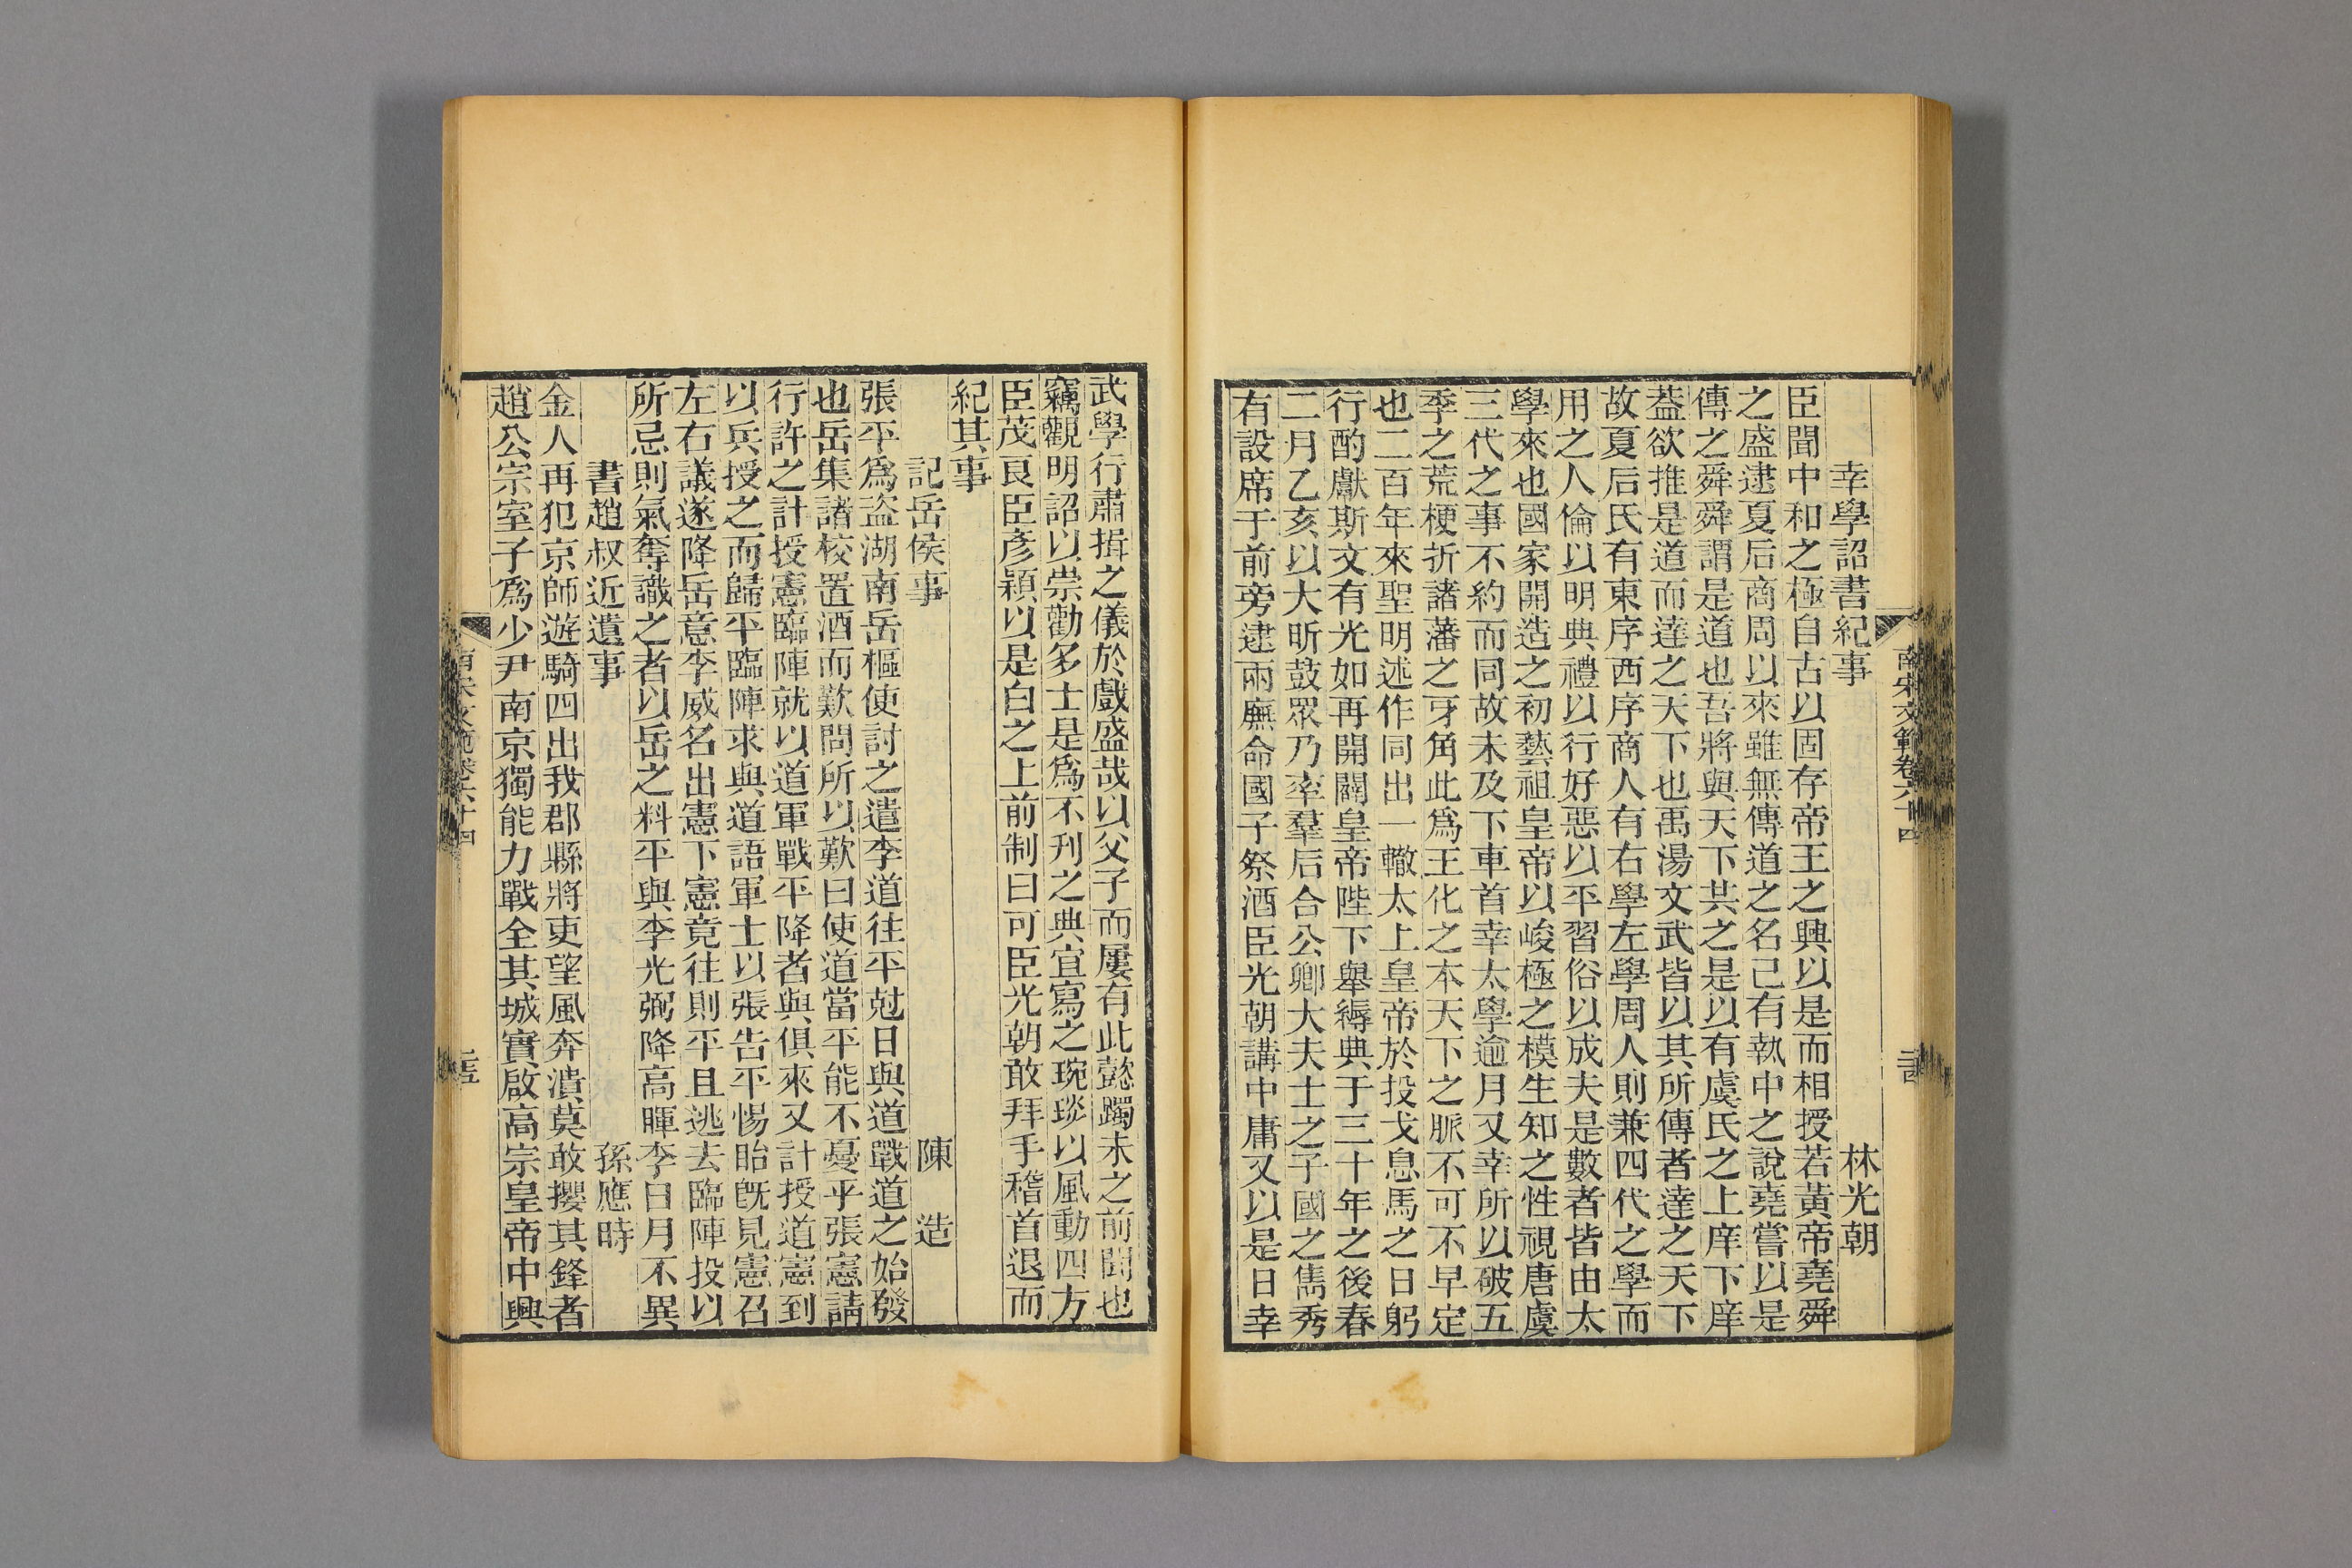 幸學詔書紀事 林光朝
臣聞中和之極自古以固存帝王之興以是而相授若黃帝堯舜
之盛逮夏后商周以來雖無傳道之名已有執中之說堯嘗以是
傳之舜舜謂是道也吾將與天下共之是以有虞氏之上庠下庠
葢欲推是道而達之天下也禹湯文武皆以其所傳者達之天下
故夏后氏有東序西序商人有右學左學周人則兼四代之學而
用之人倫以明典禮以行好惡以平習俗以成夫是數者皆由太
學來也國家開造之初藝祖皇帝以峻極之模生知之性視唐虞
三代之事不約而同故未及下車首幸太學逾月又幸所以破五
季之荒梗折諸藩之牙角此爲王化之本天下之脈不可不早定
也二百年來聖明述作同出一轍太上皇帝於投戈息馬之日躬
行酌獻斯文有光如再開闢皇帝陛下舉縟典于三十年之後春
二月乙亥以大昕鼓眾乃率羣后合公卿大夫士之子國之雋秀
有設席于前旁逮兩廡命國子祭酒臣光朝講中庸又以是日幸
南宋文範卷六十四
武學行肅揖之儀於戲盛哉以父子而屢有此懿躅未之前聞也
竊觀明詔以崇勸多士是爲不刊之典宜寫之琬琰以風動四方
臣茂良臣彥穎以是白之上前制曰可臣光朝敢拜手稽首退而
紀其事
記岳侯事 陳造
張平爲盜湖南岳樞使討之遣李道往平尅日與道戰道之始發
也岳集諸校置酒而歎問所以歎曰使道當平能不憂乎張憲請
行許之計授憲臨陣就以道軍戰平降者與俱來又計授道憲到
以兵授之而歸平臨陣求與道語軍士以張告平惕眙旣見憲召
左右議遂降岳意李威名出憲下憲竟往則平且逃去臨陣投以
所忌則氣奪識之者以岳之料平與李光弼降高暉李日月不異
書趙叔近遺事 孫應時
金人再犯京師遊騎四出我郡縣將吏望風奔潰莫敢攖其鋒者
趙公宗室子爲少尹南京獨能力戰全其城實啟高宗皇帝中興
南宋文範卷六十四